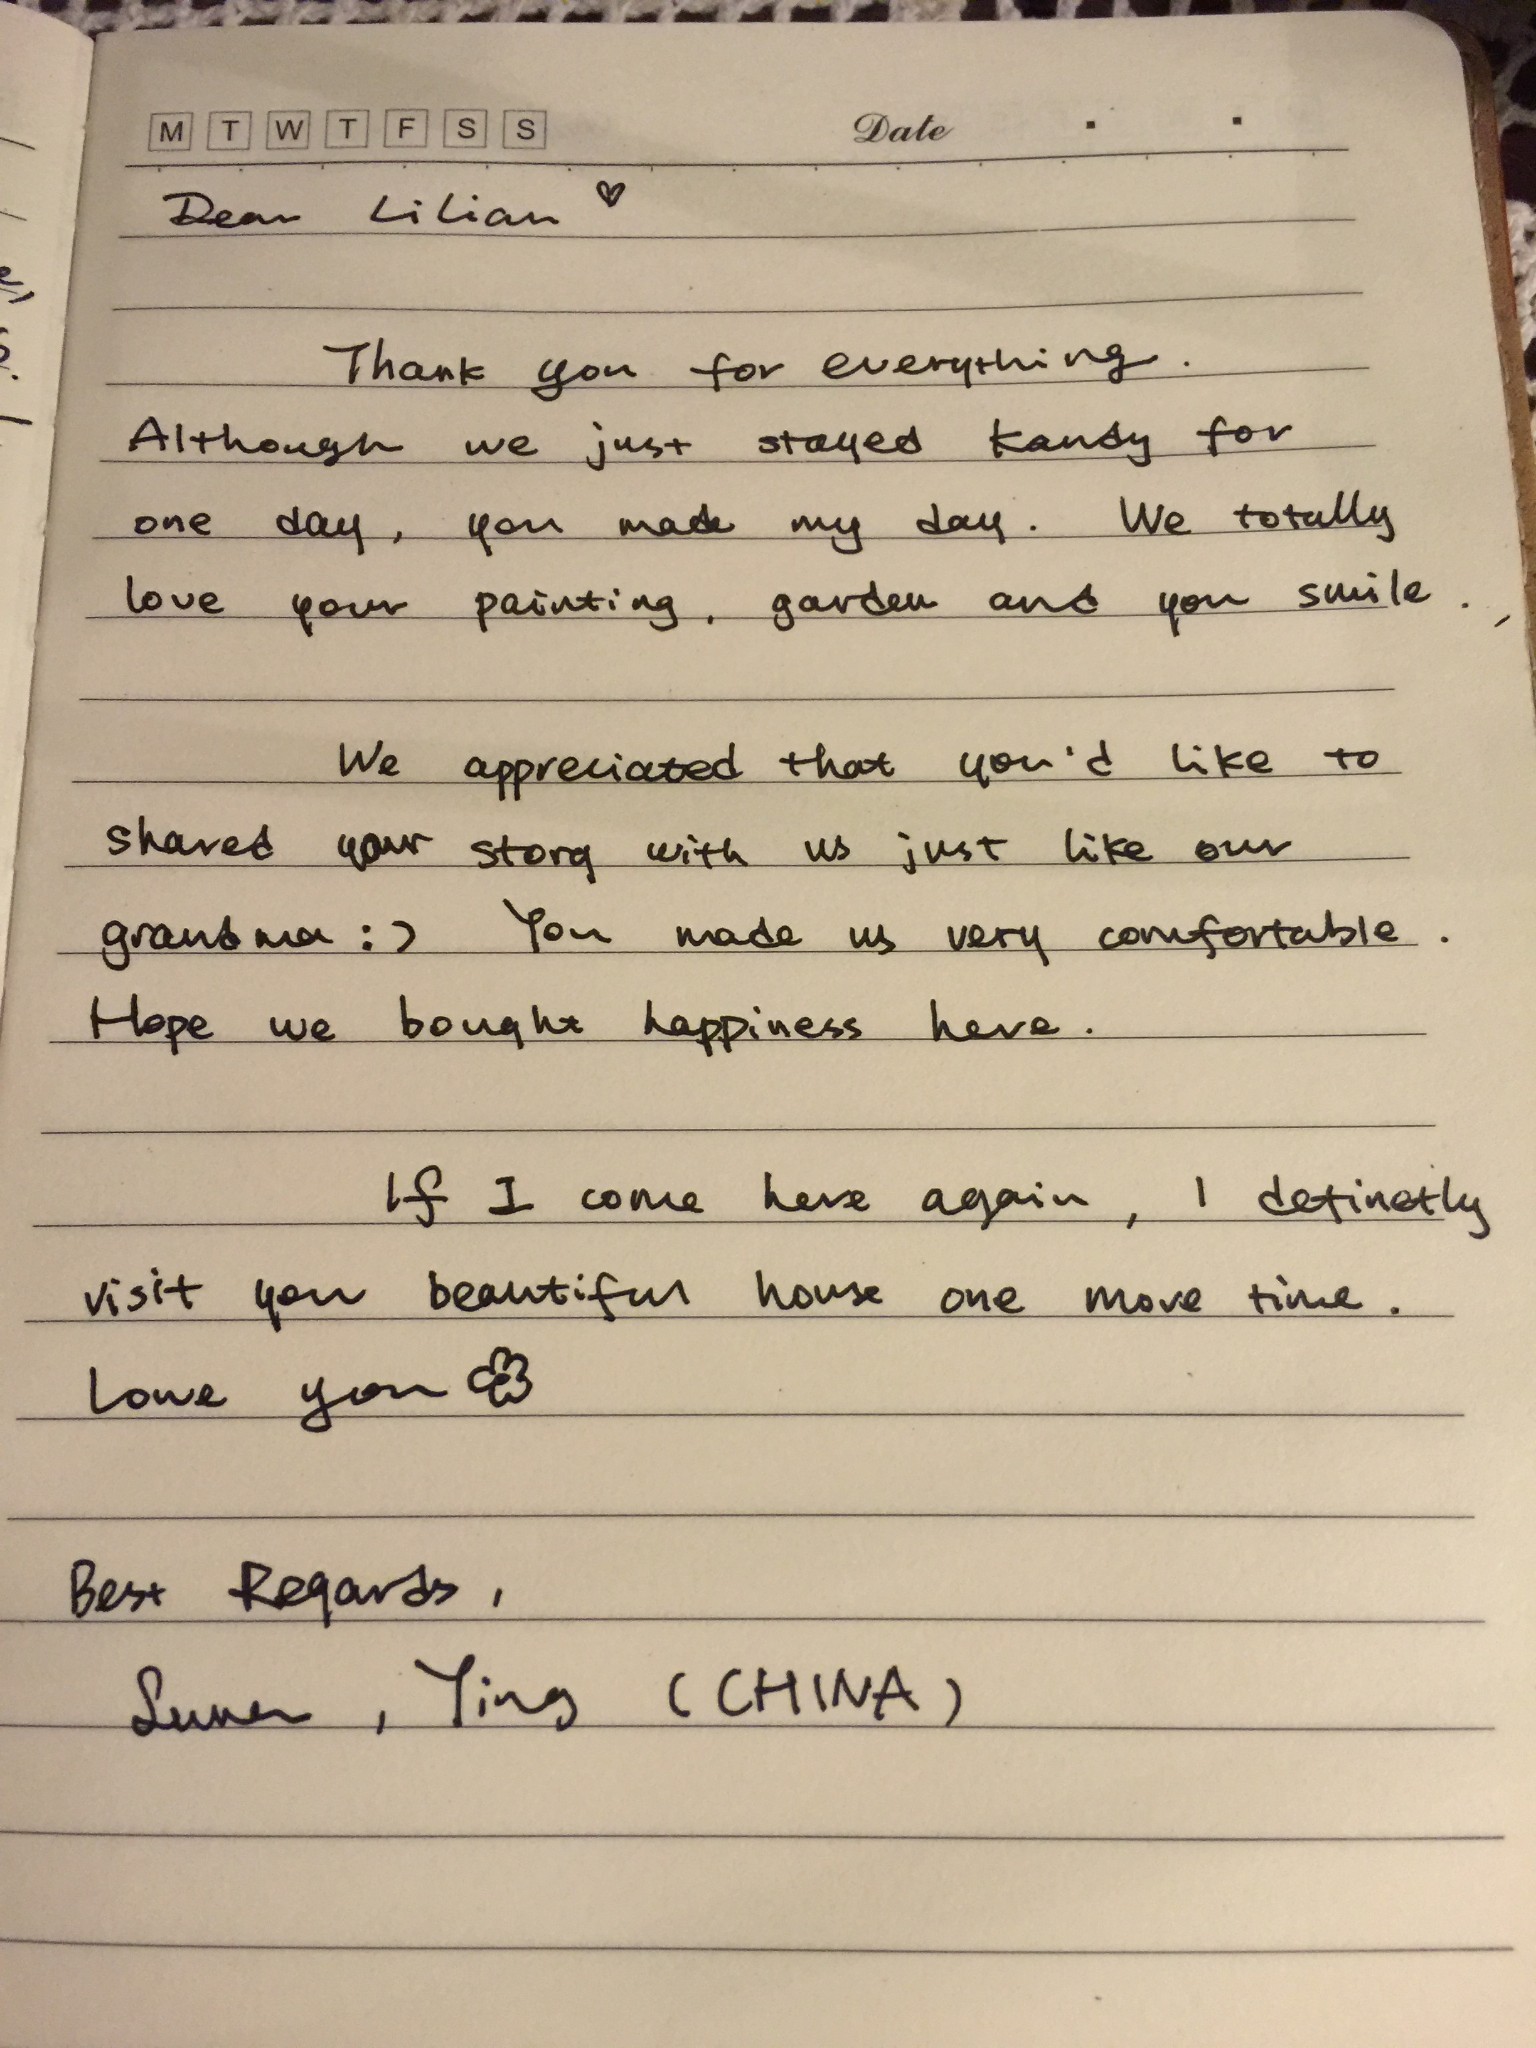 M T W T F S S Date
Dear Lilian ♡
Thank you for everything.
Although we just stayed Kandy for
one day, you made my day. We totally
love your painting, garden and you smile.
We appreciated that you'd like to
shared your story with us just like our
grandma :) You made us very comfortable.
Hope we bought happiness here.
If I come here again, I definetly
visit you beautiful house one more time.
Love you
Best Regards,
, Ying (CHINA)